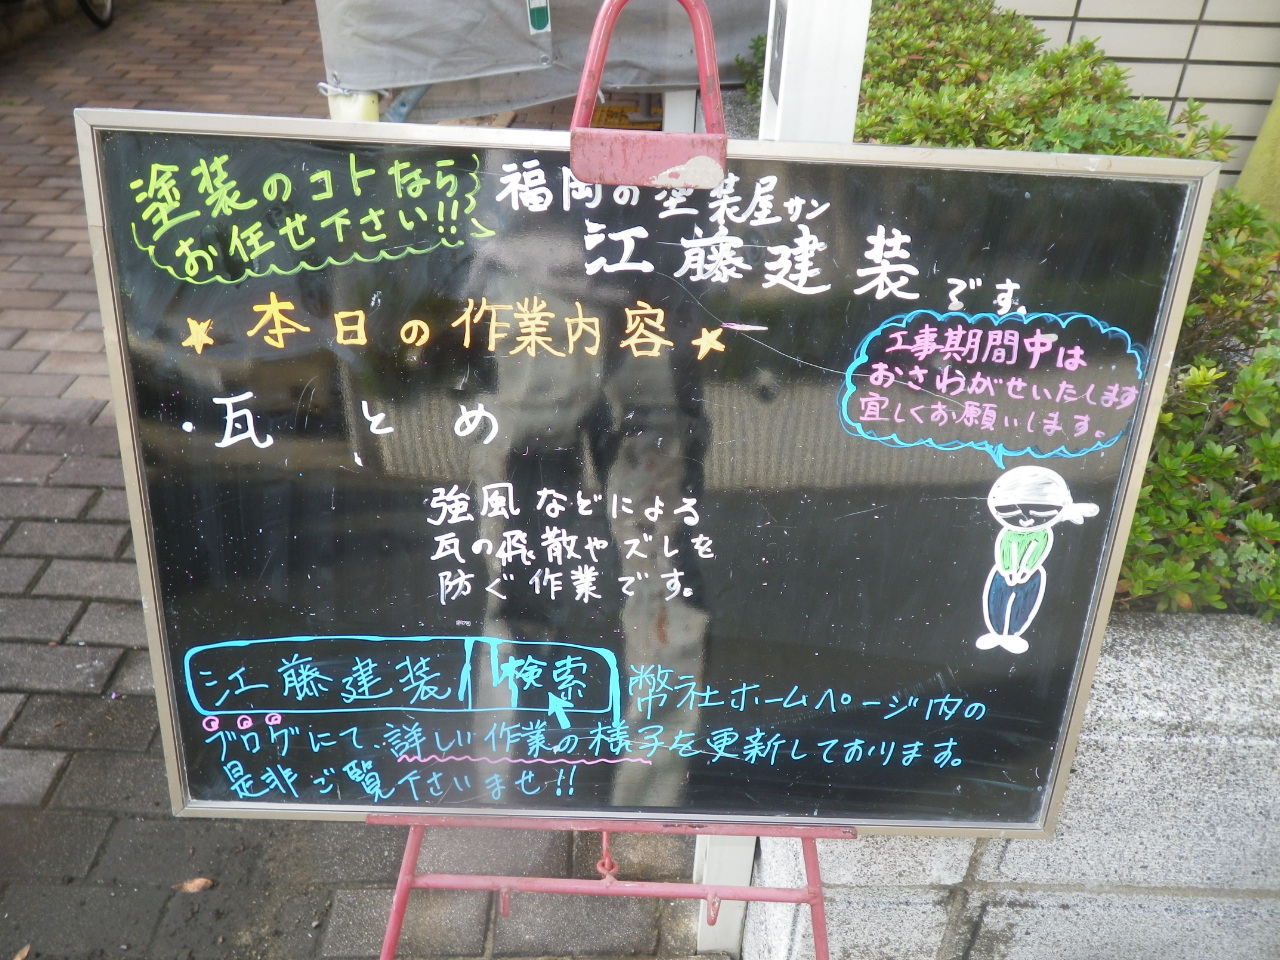 塗装のコトなら
お任せ下さい!!
福岡の塗装屋サン
江藤建装です。
★本日の作業内容★
工事期間中は
おさわがせいたします
宜しくお願いします。
・瓦とめ
強風などによる
瓦の飛散やズレを
防ぐ作業です。
江藤建装 検索 弊社ホームページ内の
ブログにて、詳しい作業の様子を更新しております。
是非ご覧下さいませ!!